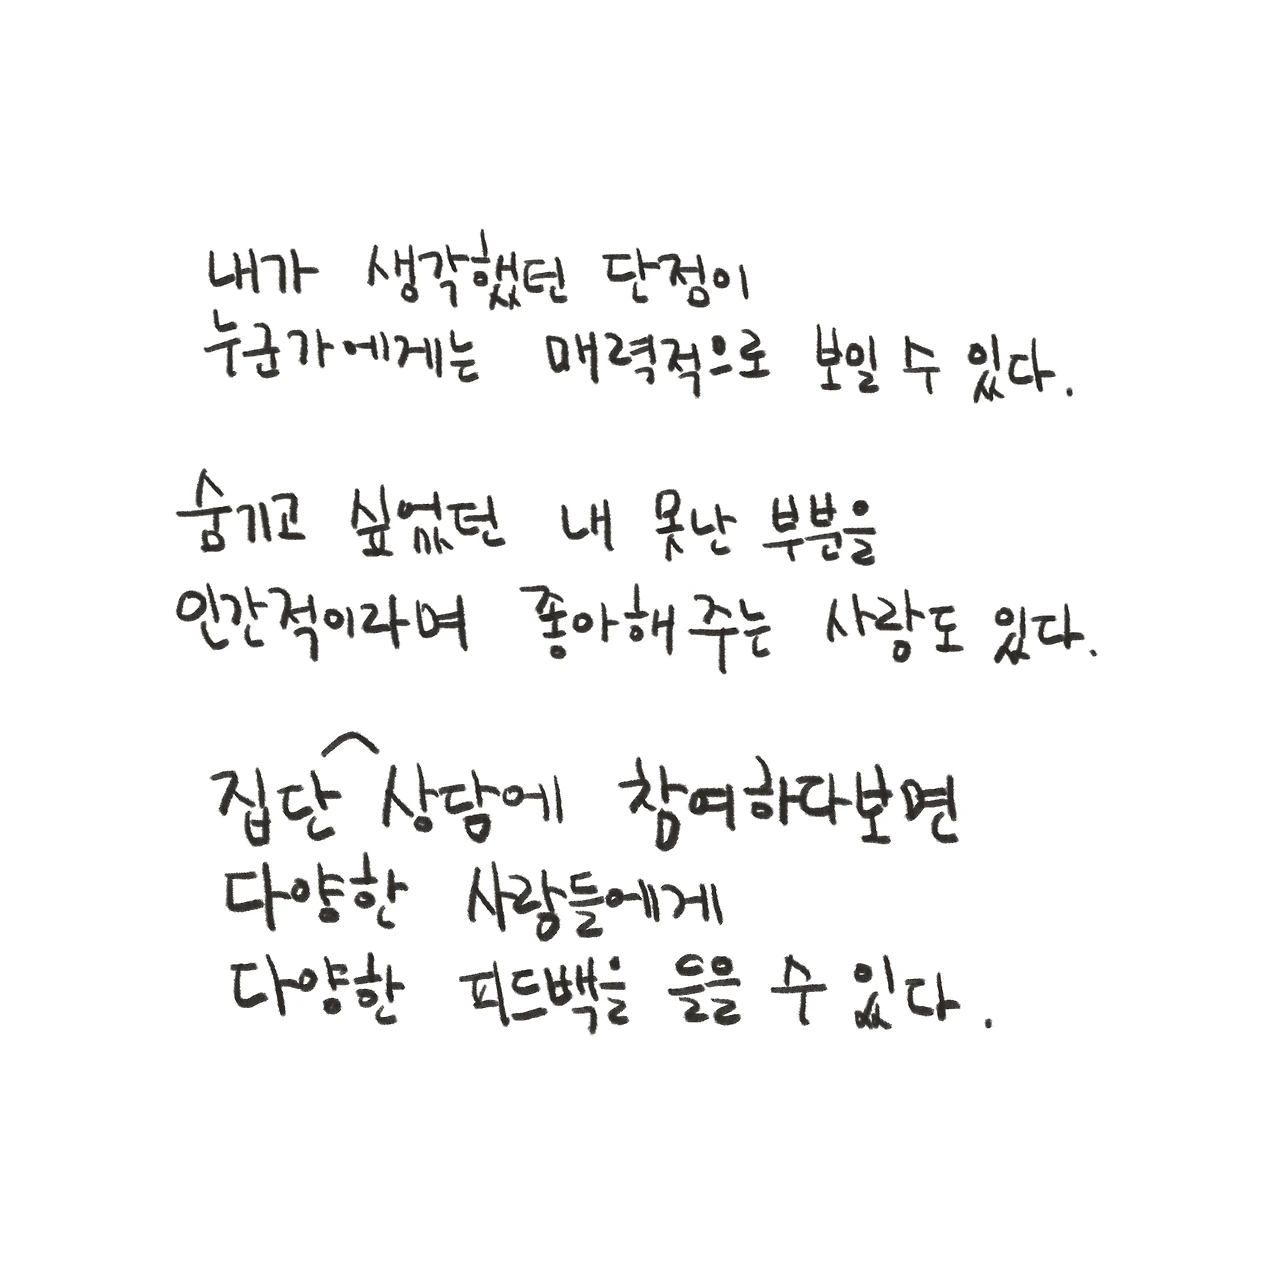 내가 생각했던 단점이
누군가에게는 매력적으로 보일 수 있다.
숨기고 싶었던 내 못난 부분을
인간적이라며 좋아해 주는 사람도 있다.
집단 상담에 참여하다보면
다양한 사람들에게
다양한 피드백을 들을 수 있다.